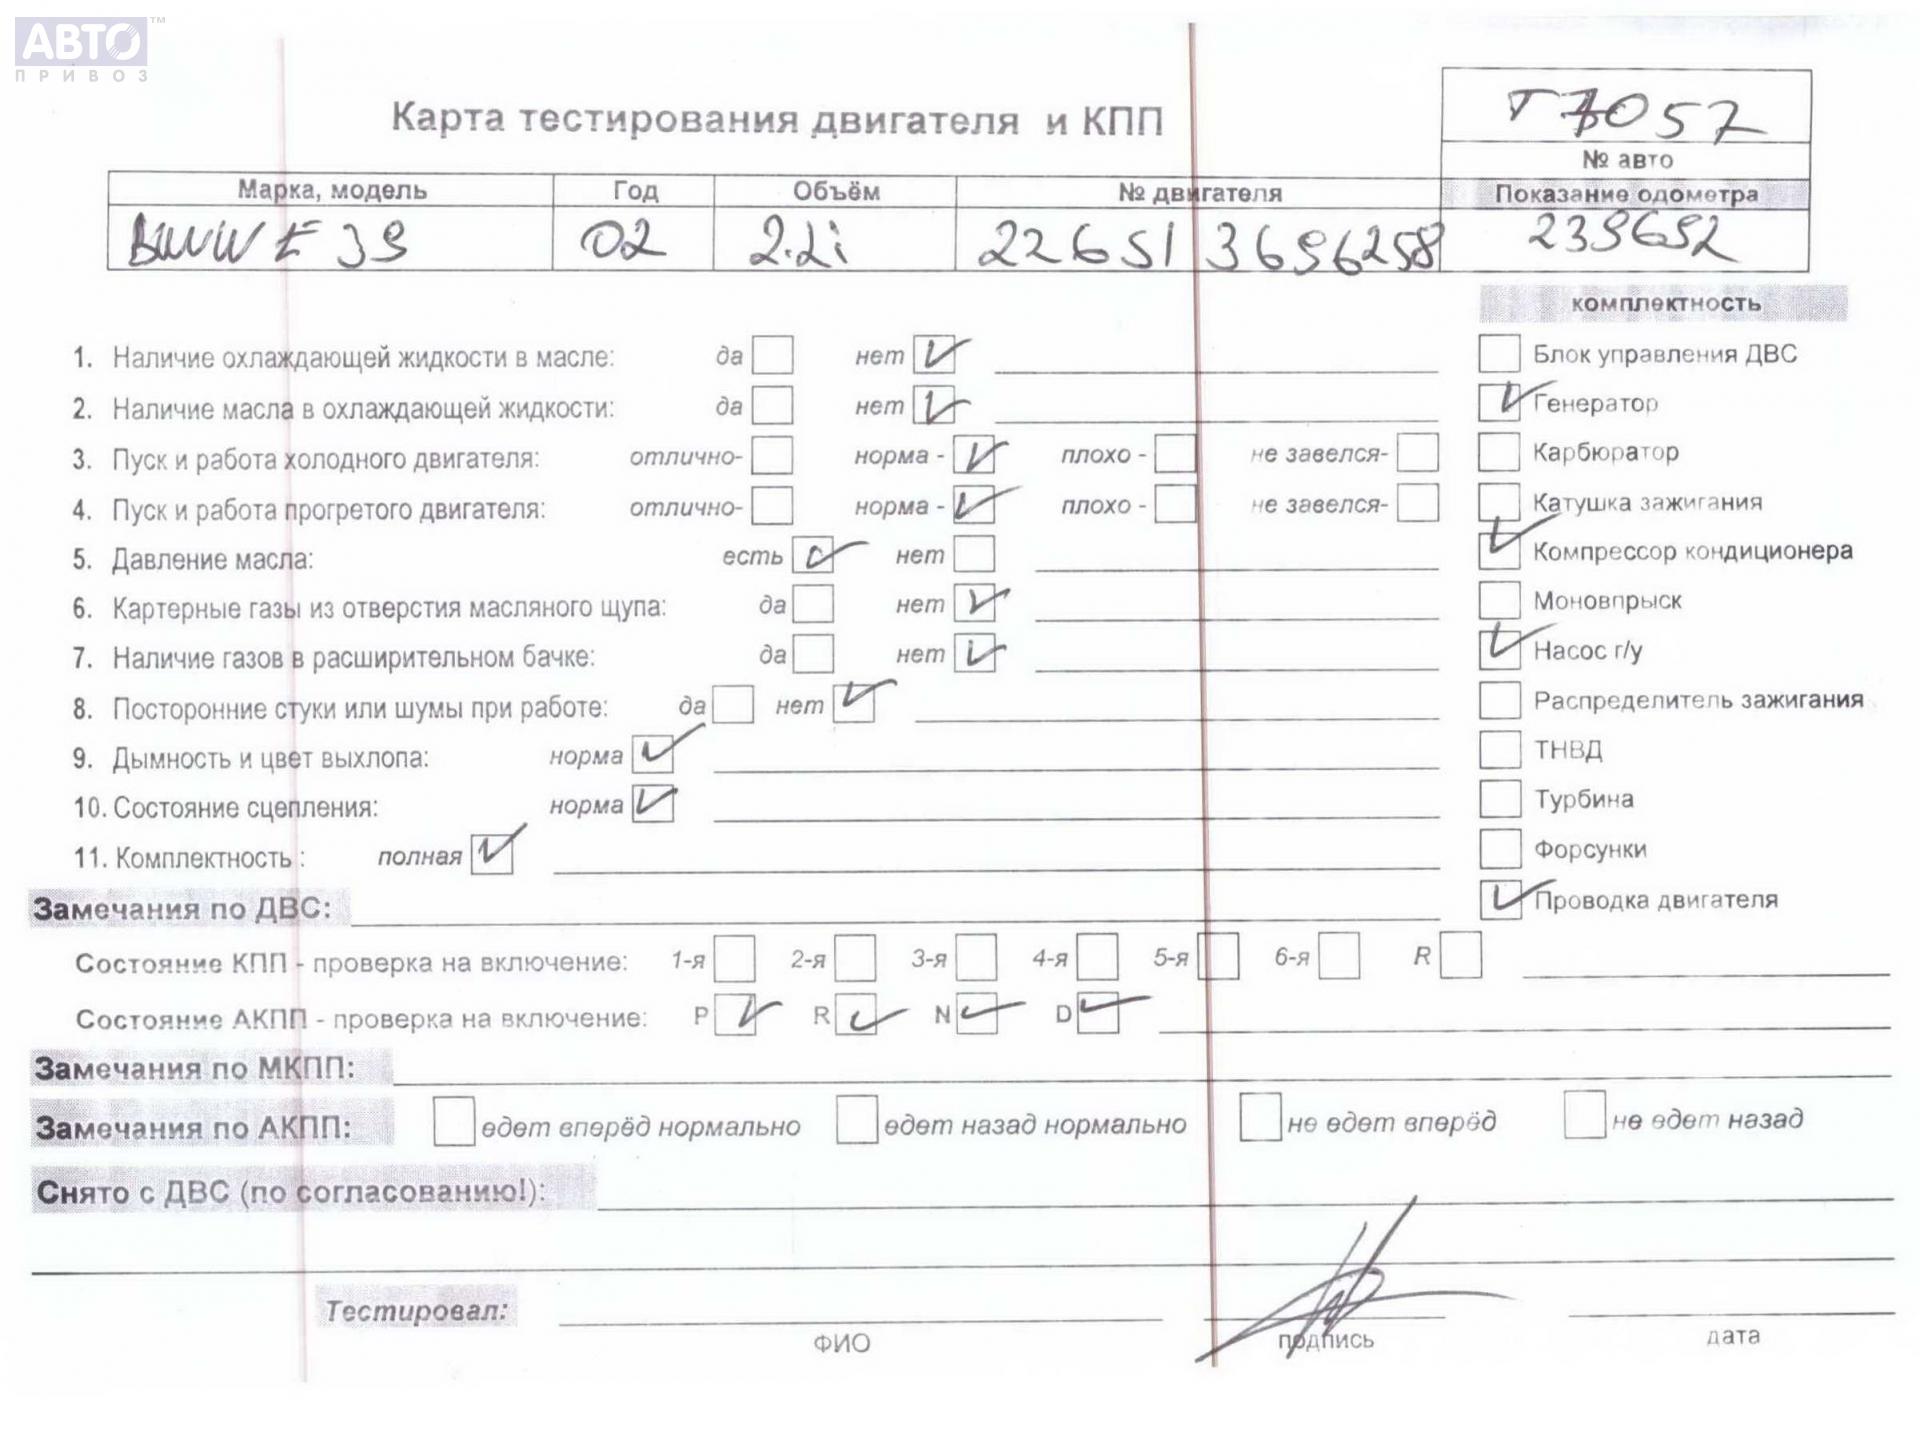 АВТО™
ПРИВОЗ
Карта тестирования двигателя и КПП
T7057
№ авто
Марка, модель Год Объём № двигателя Показание одометра
BMW E39 02 2.2i 226S1 36962S8 239692
комплектность
1. Наличие охлаждающей жидкости в масле: да нет
Блок управления ДВС
2. Наличие масла в охлаждающей жидкости: да нет
Генератор
3. Пуск и работа холодного двигателя: отлично- норма - плохо - не завелся-
Карбюратор
4. Пуск и работа прогретого двигателя: отлично- норма - плохо - не завелся-
Катушка зажигания
5. Давление масла: есть нет
Компрессор кондиционера
6. Картерные газы из отверстия масляного щупа: да нет
Моновпрыск
7. Наличие газов в расширительном бачке: да нет
Насос г/у
8. Посторонние стуки или шумы при работе: да нет
Распределитель зажигания
9. Дымность и цвет выхлопа: норма
ТНВД
10. Состояние сцепления: норма
Турбина
11. Комплектность : полная
Форсунки
Замечания по ДВС:
Проводка двигателя
Состояние КПП - проверка на включение: 1-я 2-я 3-я 4-я 5-я 6-я R
Состояние АКПП - проверка на включение: P R N D
Замечания по МКПП:
Замечания по АКПП: едет вперёд нормально едет назад нормально не едет вперёд не едет назад
Снято с ДВС (по согласованию!):
Тестировал:
ФИО подпись дата